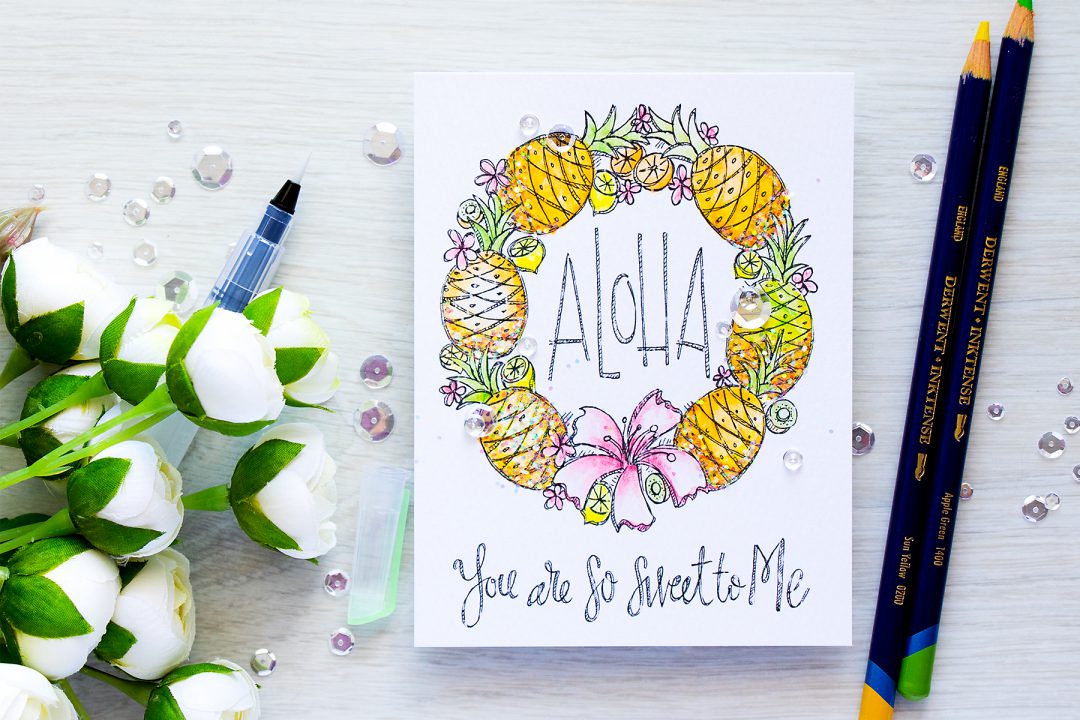 ALOHA
You are So Sweet to Me
DERWENT · INKTENSE
ENGLAND
Sun Yellow 0200
DERWENT · INKTENSE
ENGLAND
Apple Green 1400